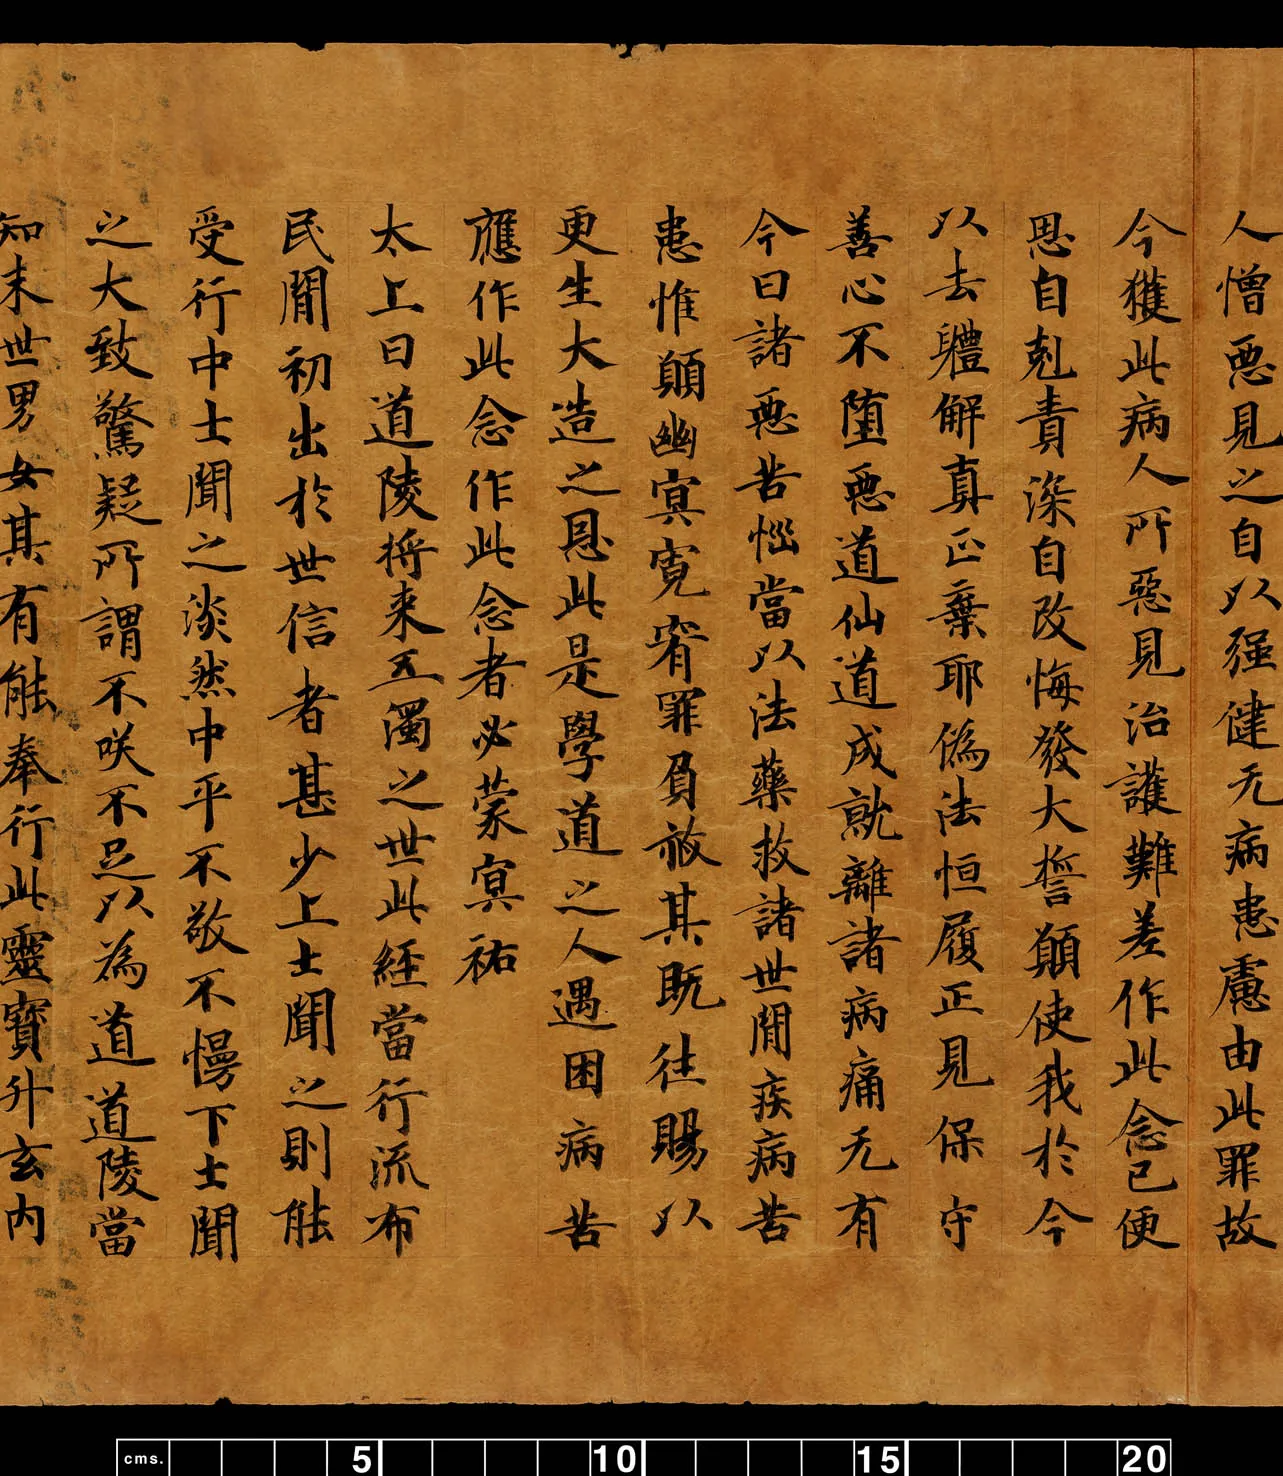 人憎惡見之自以强健无病患慮由此罪故
今獲此病人所惡見治護難差作此念已便
思自剋責深自改悔發大誓願使我於今
以去軆解真正棄耶偽法恒履正見保守
善心不墮惡道仙道成就離諸病痛无有
今日諸惡苦惱當以法藥救諸世間疾病苦
患惟願幽冥寬宥罪負赦其既往賜以
更生大造之恩此是學道之人遇困病苦
應作此念作此念者必蒙冥祐
太上曰道陵將来五濁之世此經當行流布
民間初出於世信者甚少上士聞之則能
受行中士聞之淡然中平不敬不慢下士聞
之大致驚疑所謂不咲不足以為道道陵當
知末世男女其有能奉行此靈寶升玄内
cms. 5 10 15 20